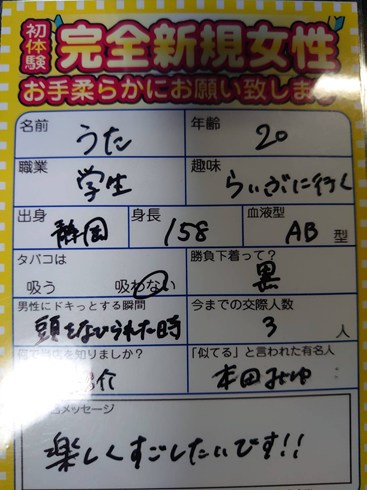 初体験
完全新規女性
お手柔らかにお願い致します
名前 うた 年齢 20
職業 学生 趣味 らいぶに行く
出身 静岡 身長 158 血液型 AB 型
タバコは 吸う 吸わない 勝負下着って? 黒
男性にドキっとする瞬間 頭をなでられた時 今までの交際人数 3 人
何で当店を知りましか? 介 「似てる」と言われた有名人 本田みゆ
メッセージ
楽しくすごしたいです!!